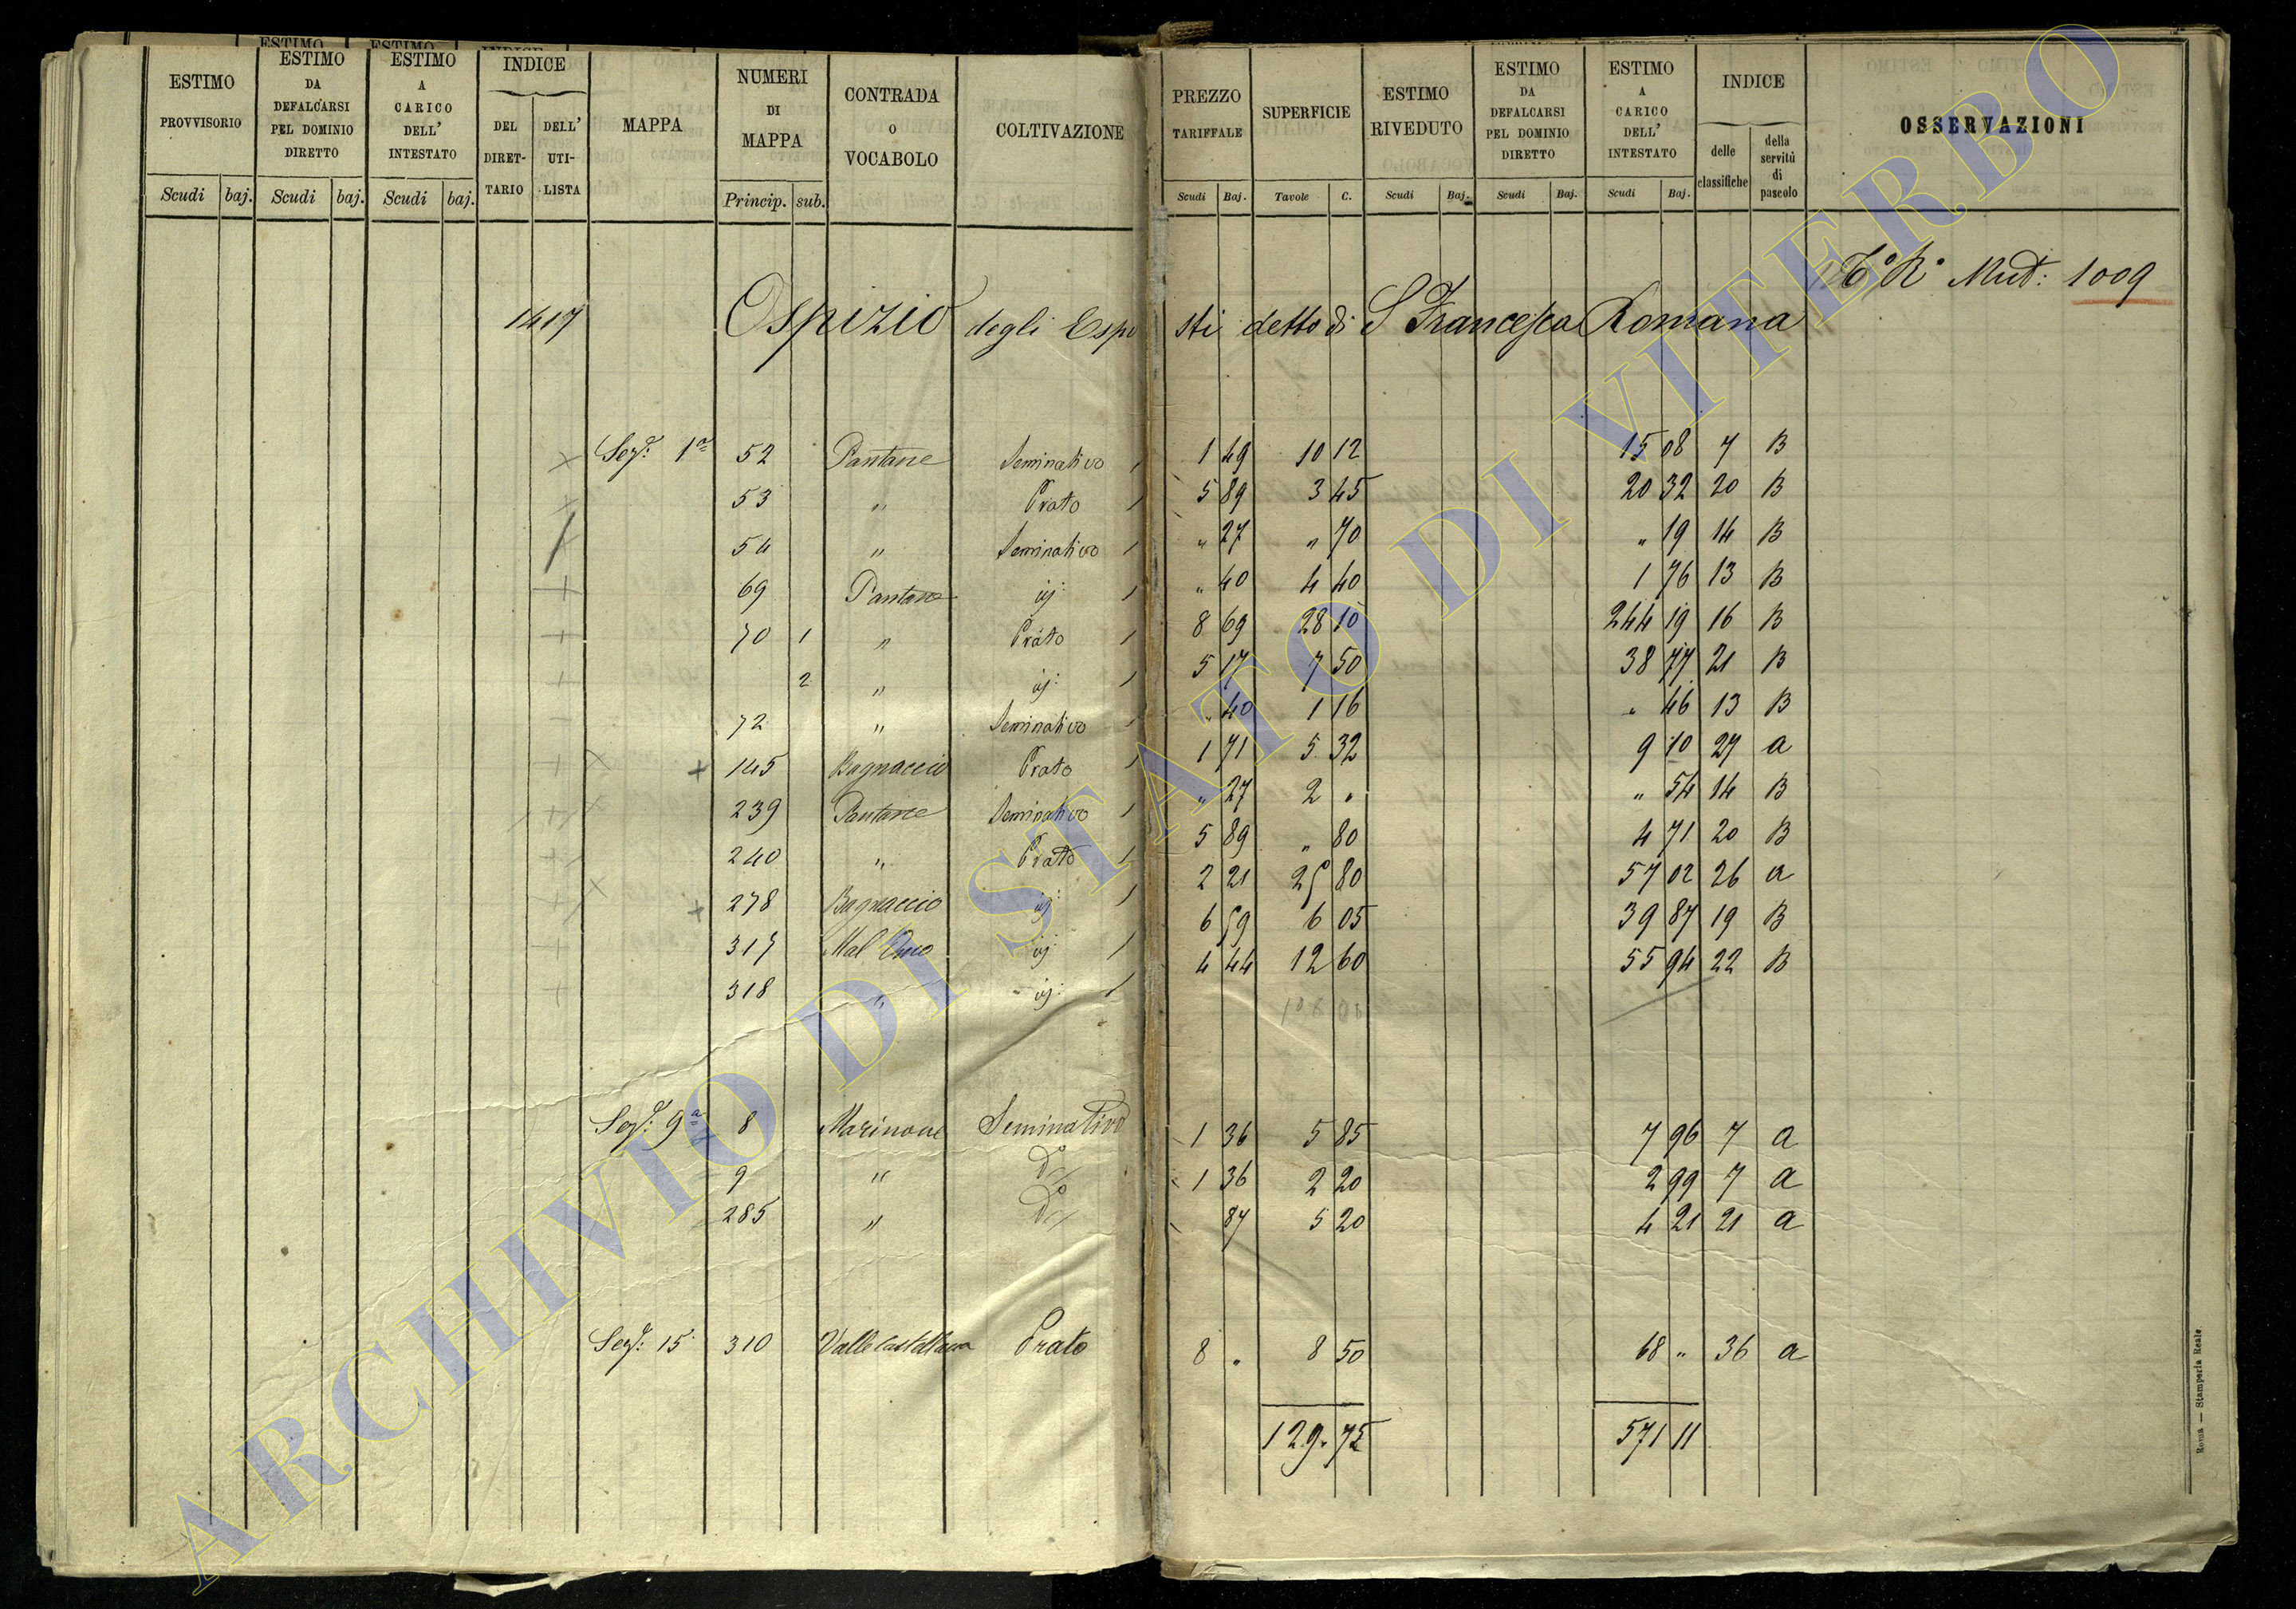 ESTIMO PROVVISORIO | ESTIMO DA DEFALCARSI PEL DOMINIO DIRETTO | ESTIMO A CARICO DELL' INTESTATO | INDICE DEL DIRETTARIO | DELL' UTILISTA | MAPPA | NUMERI DI MAPPA | CONTRADA O VOCABOLO | COLTIVAZIONE | PREZZO TARIFFALE | SUPERFICIE | ESTIMO RIVEDUTO | ESTIMO DA DEFALCARSI PEL DOMINIO DIRETTO | ESTIMO A CARICO DELL' INTESTATO | INDICE delle classifiche | della servitù di pascolo | OSSERVAZIONI
Scudi baj. Scudi baj. Scudi baj. Princip. sub. Scudi Baj. Tavole C. Scudi Baj. Scudi Baj. Scudi Baj.
Mut: 1009
1417 Ospizio degli Esposti detto di S Francesca Romana
Sez.e 1a 52 Pantane Seminativo 1 49 10 12 15 08 7 B
53 " Prato 5 89 3 45 20 32 20 B
54 " Seminativo " 27 " 70 " 19 14 B
69 Pantane ij: " 40 4 40 1 76 13 B
70 1 " Prato 8 69 28 10 244 19 16 B
2 " ij: 5 17 7 50 38 77 21 B
72 " Seminativo " 40 1 16 " 46 13 B
145 Bagnaccio Prato 1 71 5 32 9 10 27 a
239 Pantane Seminativo " 27 2 " " 54 14 B
240 " Prato 5 89 " 80 4 71 20 B
278 Bagnaccio ij: 2 21 25 80 57 02 26 a
317 Mal ij: 6 59 6 05 39 87 19 B
318 " ij: 4 44 12 60 55 94 22 B
Sez.e 9a 8 Marinone Seminativo 1 36 5 85 7 96 7 a
9 " Do 1 36 2 20 2 99 7 a
285 " Do 87 5 20 4 21 21 a
Sez.e 15 310 Valle castellana Prato 8 " 8 50 68 " 36 a
129. 75 571 11
Roma — Stamperia Reale.
ARCHIVIO DI STATO DI VITERBO